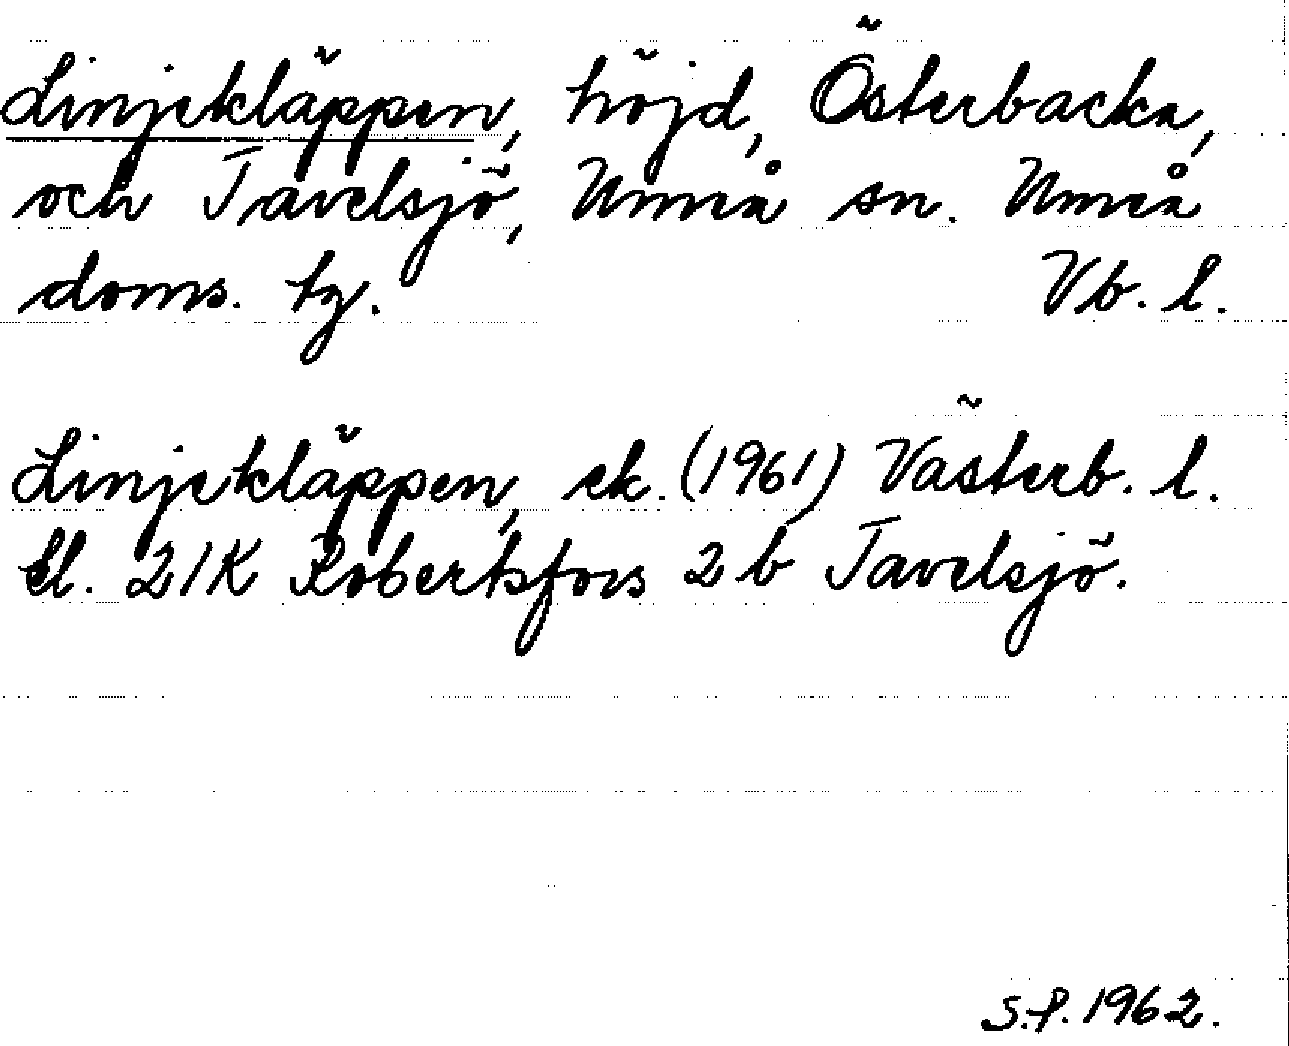 Linjekläppen, höjd, Österbacka,
och Tavelsjö, Umeå sn. Umeå
doms. tg. Vb. l.
Linjekläppen, ek. (1961) Västerb. l.
bl. 21K Robertsfors 2 b Tavelsjö.
S.P. 1962.